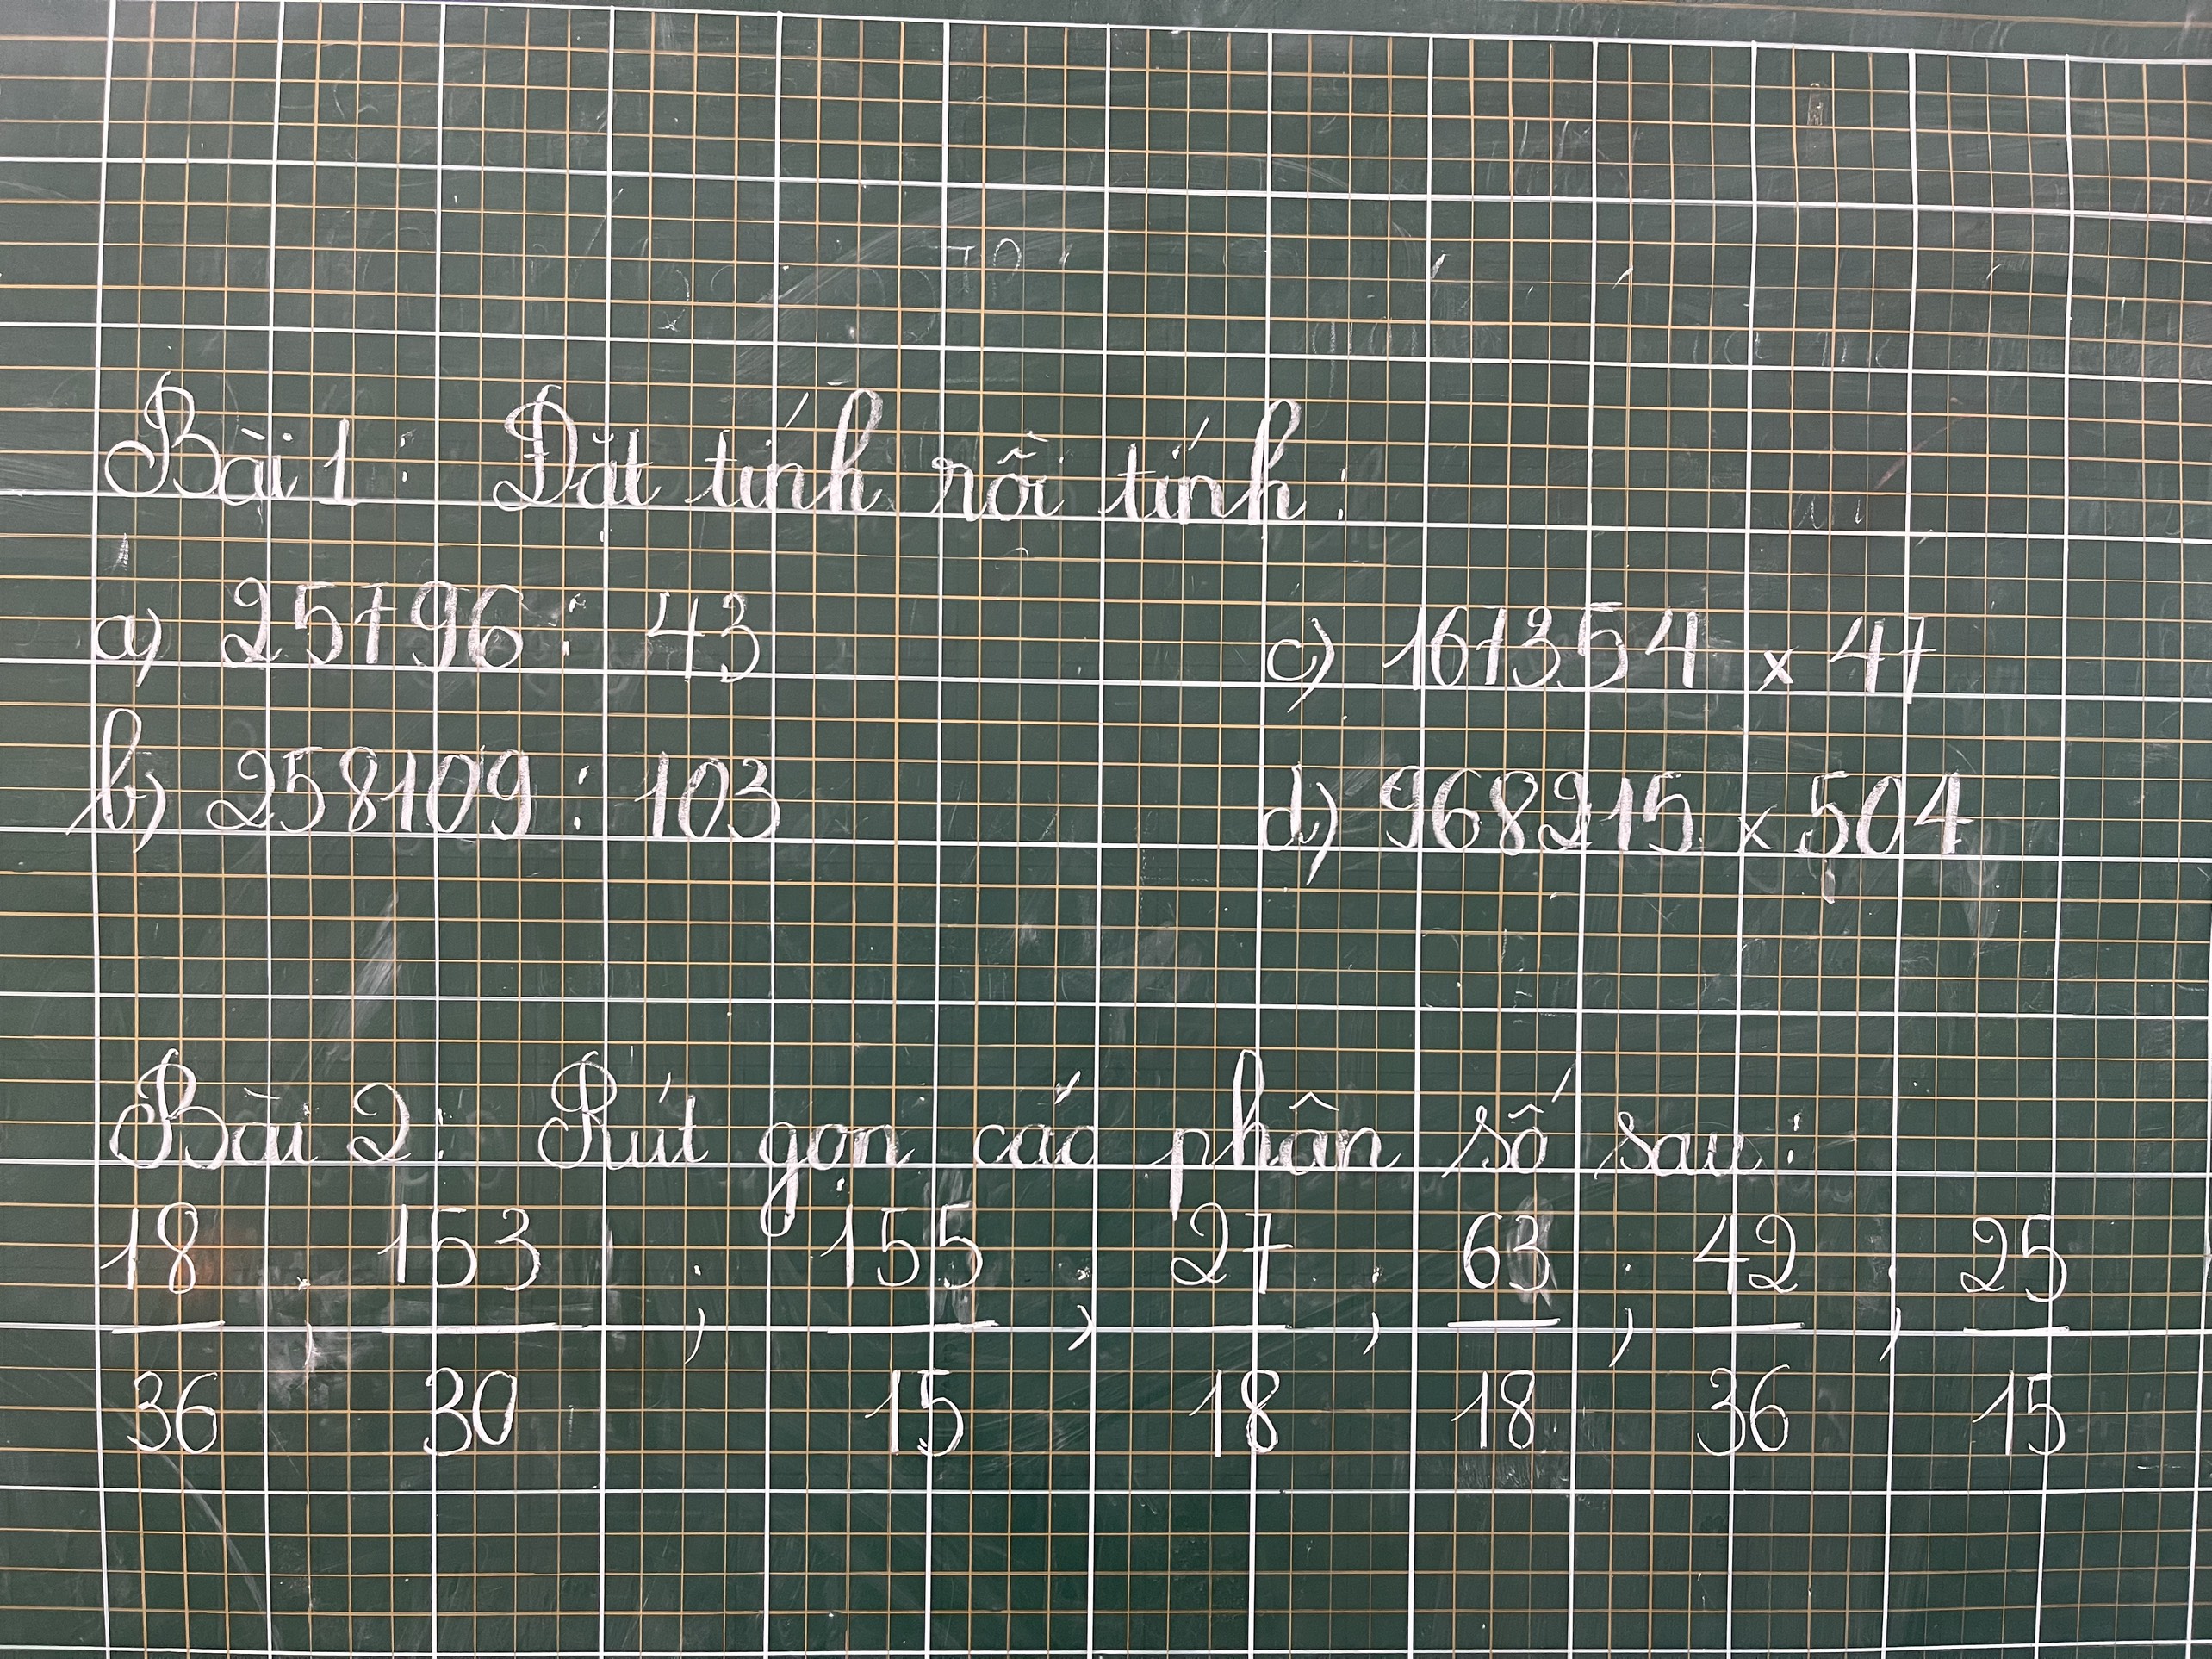 Bài 1 : Đặt tính rồi tính :
a) 25796 : 43 c) 167354 x 47
b) 258109 : 103 d) 968215 x 504
Bài 2 : Rút gọn các phân số sau :
18/36 ; 153/30 ; 155/15 ; 27/18 ; 63/18 ; 42/36 ; 25/15